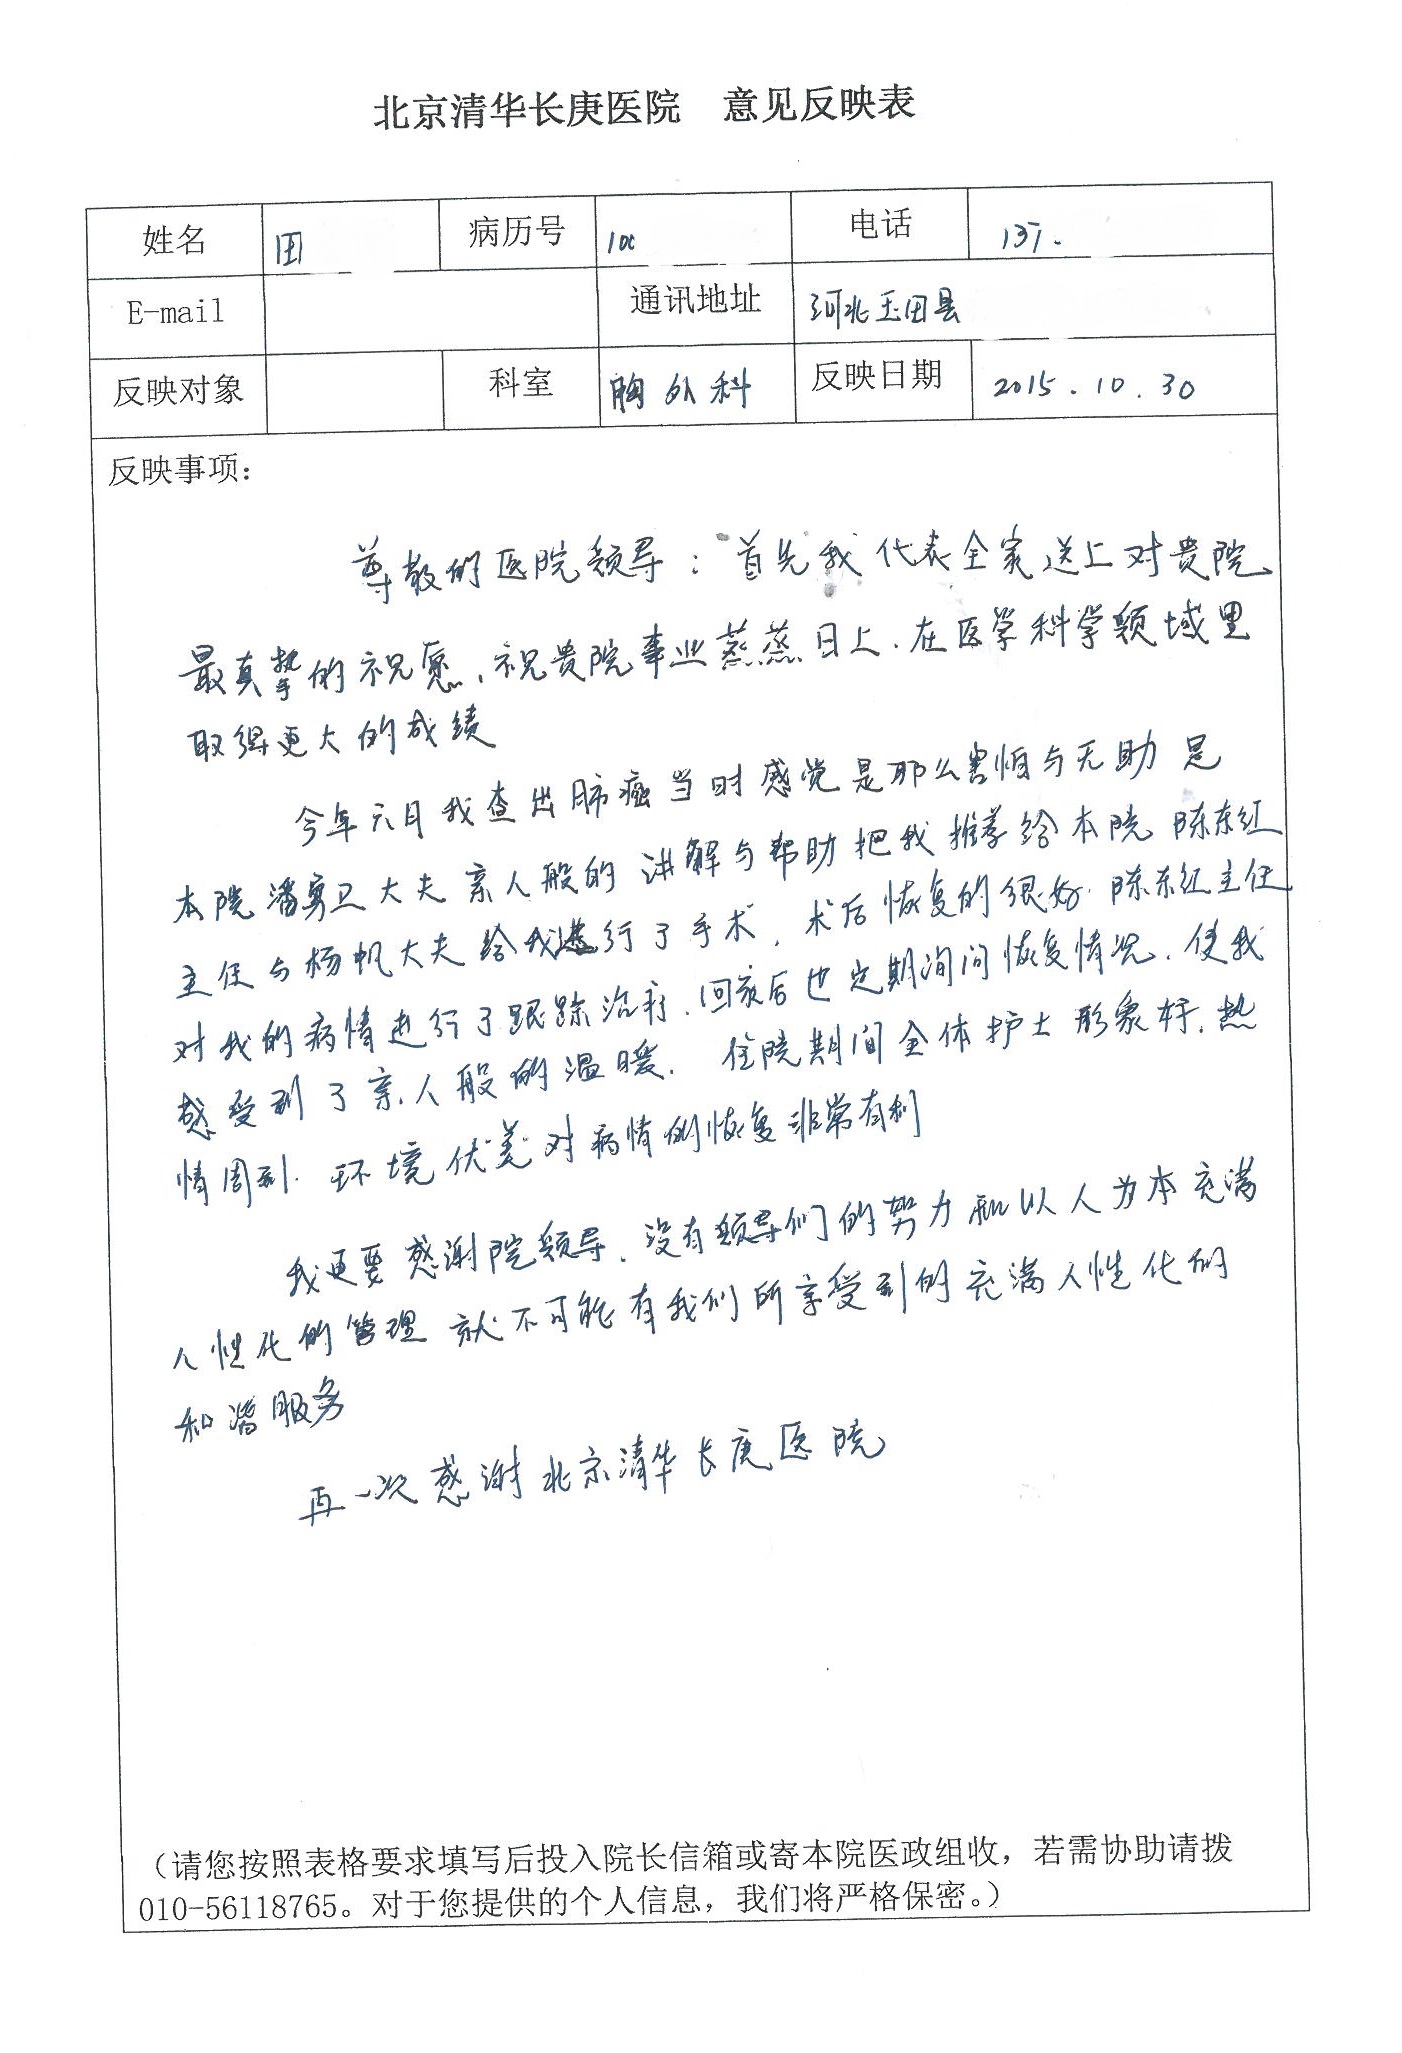 北京清华长庚医院 意见反映表
姓名 田 病历号 100 电话 137.
E-mail 通讯地址 河北玉田县
反映对象 科室 胸外科 反映日期 2015.10.30
反映事项:
尊敬的医院领导:首先我代表全家送上对贵院
最真挚的祝愿、祝贵院事业蒸蒸日上.在医学科学领域里
取得更大的成绩
今年六月我查出肺癌当时感觉是那么害怕与无助 是
本院潘勇卫大夫亲人般的讲解与帮助把我推荐给本院陈东红
主任与杨帆大夫给我进行了手术,术后恢复的很好.陈东红主任
对我的病情进行了跟踪治疗.回家后也定期询问恢复情况.使我
感受到了亲人般的温暖. 住院期间全体护士形象好.热
情周到.环境优美对病情的恢复非常有利
我更要感谢院领导.没有领导们的努力和以人为本充满
人性化的管理就不可能有我们所享受到的充满人性化的
和谐服务
再一次感谢北京清华长庚医院
(请您按照表格要求填写后投入院长信箱或寄本院医政组收，若需协助请拨
010-56118765。对于您提供的个人信息，我们将严格保密。)